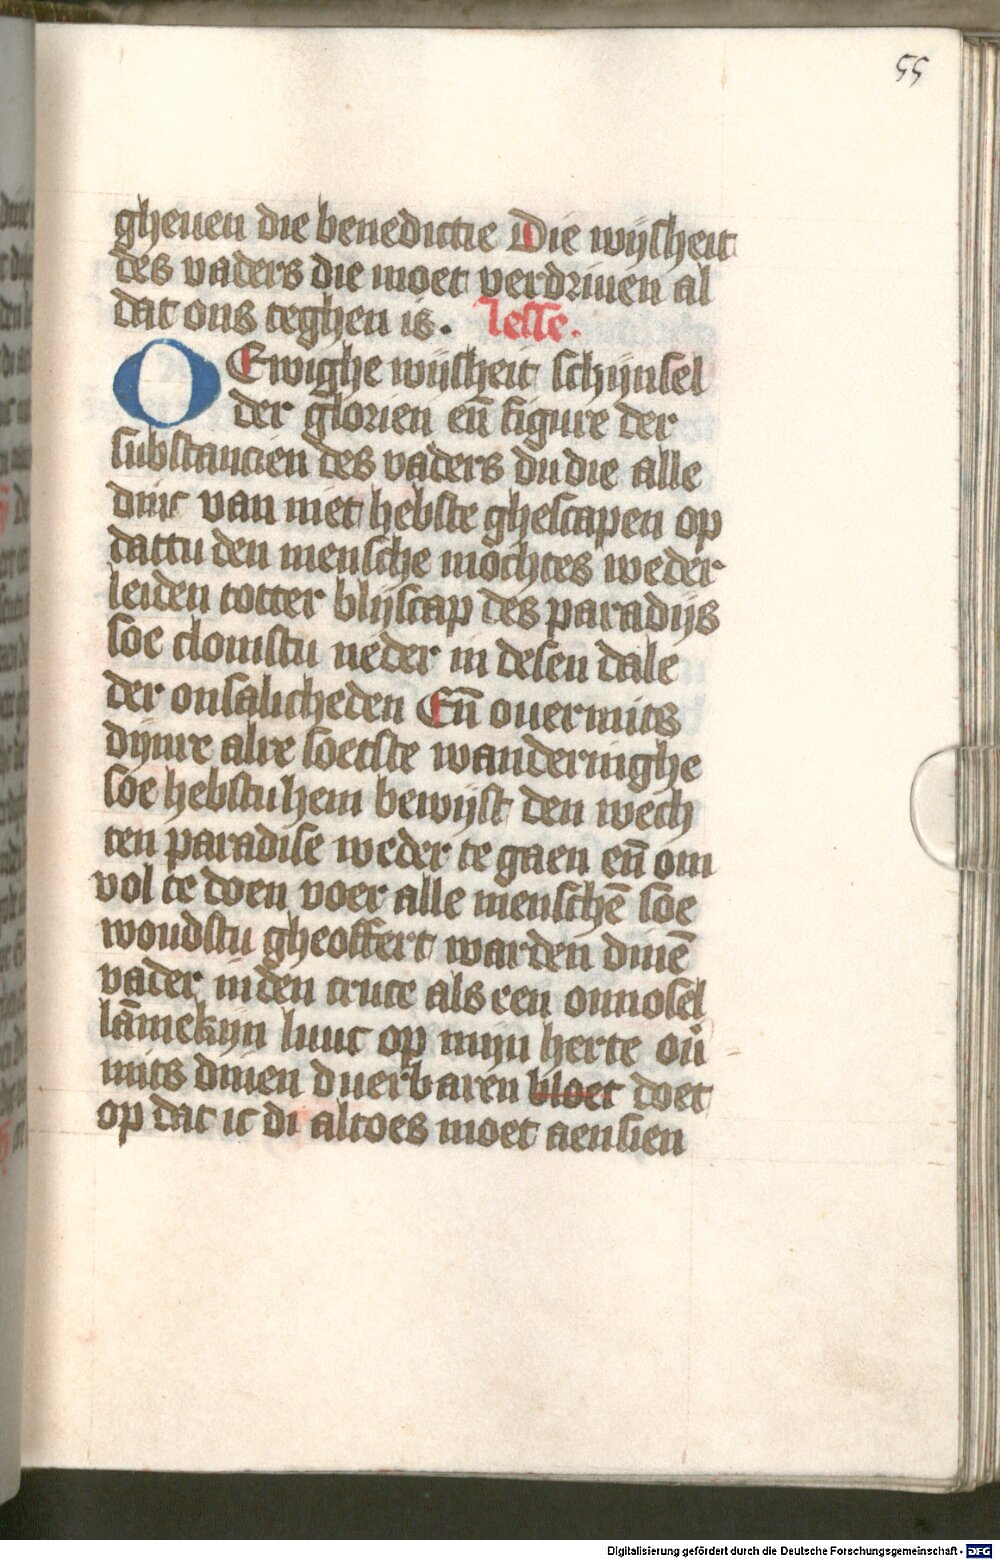 55
gheuen die benedictie Die wijsheit
des vaders die moet verdriuen al
dat ons teghen is. lesse.
O Ewighe wijsheit schijnsel
der glorien en̄ figure der
substancien des vaders du die alle
dinc van niet hebste ghescapen op
dattu den mensche mochtes weder
leiden totter blijscap des paradijs
soe clomstu neder in desen dale
der onsalicheden En̄ ouermits
dijnre alre soetste wanderinghe
soe hebstu hem bewijst den wech
ten paradise weder te gaen en̄ om
vol te doen voer alle menschē soe
woudstu gheoffert warden dinē
vader inden cruce als een onnosel
lāmekijn luuc op mijn herte ou̇
mits dinen duerbaren bloet doet
op dat ic di altoes moet aensien
Digitalisierung gefördert durch die Deutsche Forschungsgemeinschaft - DFG